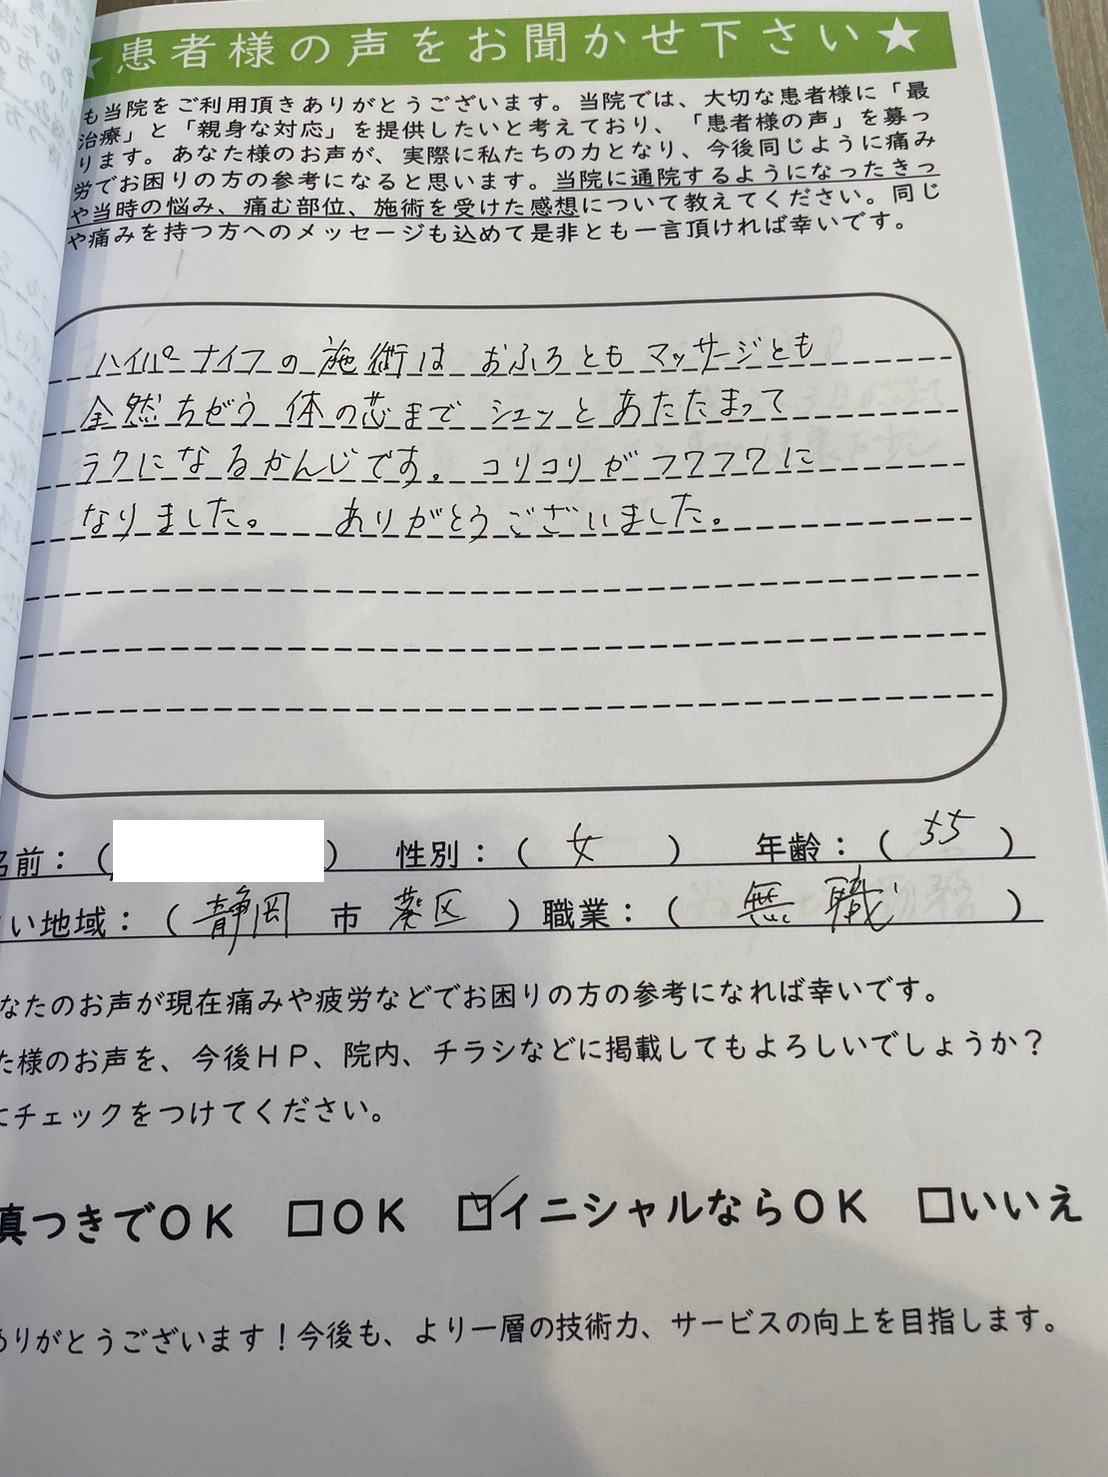 ★患者様の声をお聞かせ下さい★
も当院をご利用頂きありがとうございます。当院では、大切な患者様に「最
治療」と「親身な対応」を提供したいと考えており、「患者様の声」を募っ
ります。あなた様のお声が、実際に私たちの力となり、今後同じように痛み
労でお困りの方の参考になると思います。当院に通院するようになったきっ
や当時の悩み、痛む部位、施術を受けた感想について教えてください。同じ
や痛みを持つ方へのメッセージも込めて是非とも一言頂ければ幸いです。
ハイパーナイフの施術は おふろとも マッサージとも
全然ちがう 体の芯まで シュッと あたたまって
ラクになるかんじです。コリコリがフワフワに
なりました。 ありがとうございました。
名前：（ ） 性別：（ 女 ） 年齢：（ 55 ）
い地域：（ 静岡 市 葵区 ）職業：（ 無職 ）
なたのお声が現在痛みや疲労などでお困りの方の参考になれば幸いです。
た様のお声を、今後ＨＰ、院内、チラシなどに掲載してもよろしいでしょうか？
にチェックをつけてください。
真つきでＯＫ □ＯＫ ☑イニシャルならＯＫ □いいえ
ありがとうございます！今後も、より一層の技術力、サービスの向上を目指します。